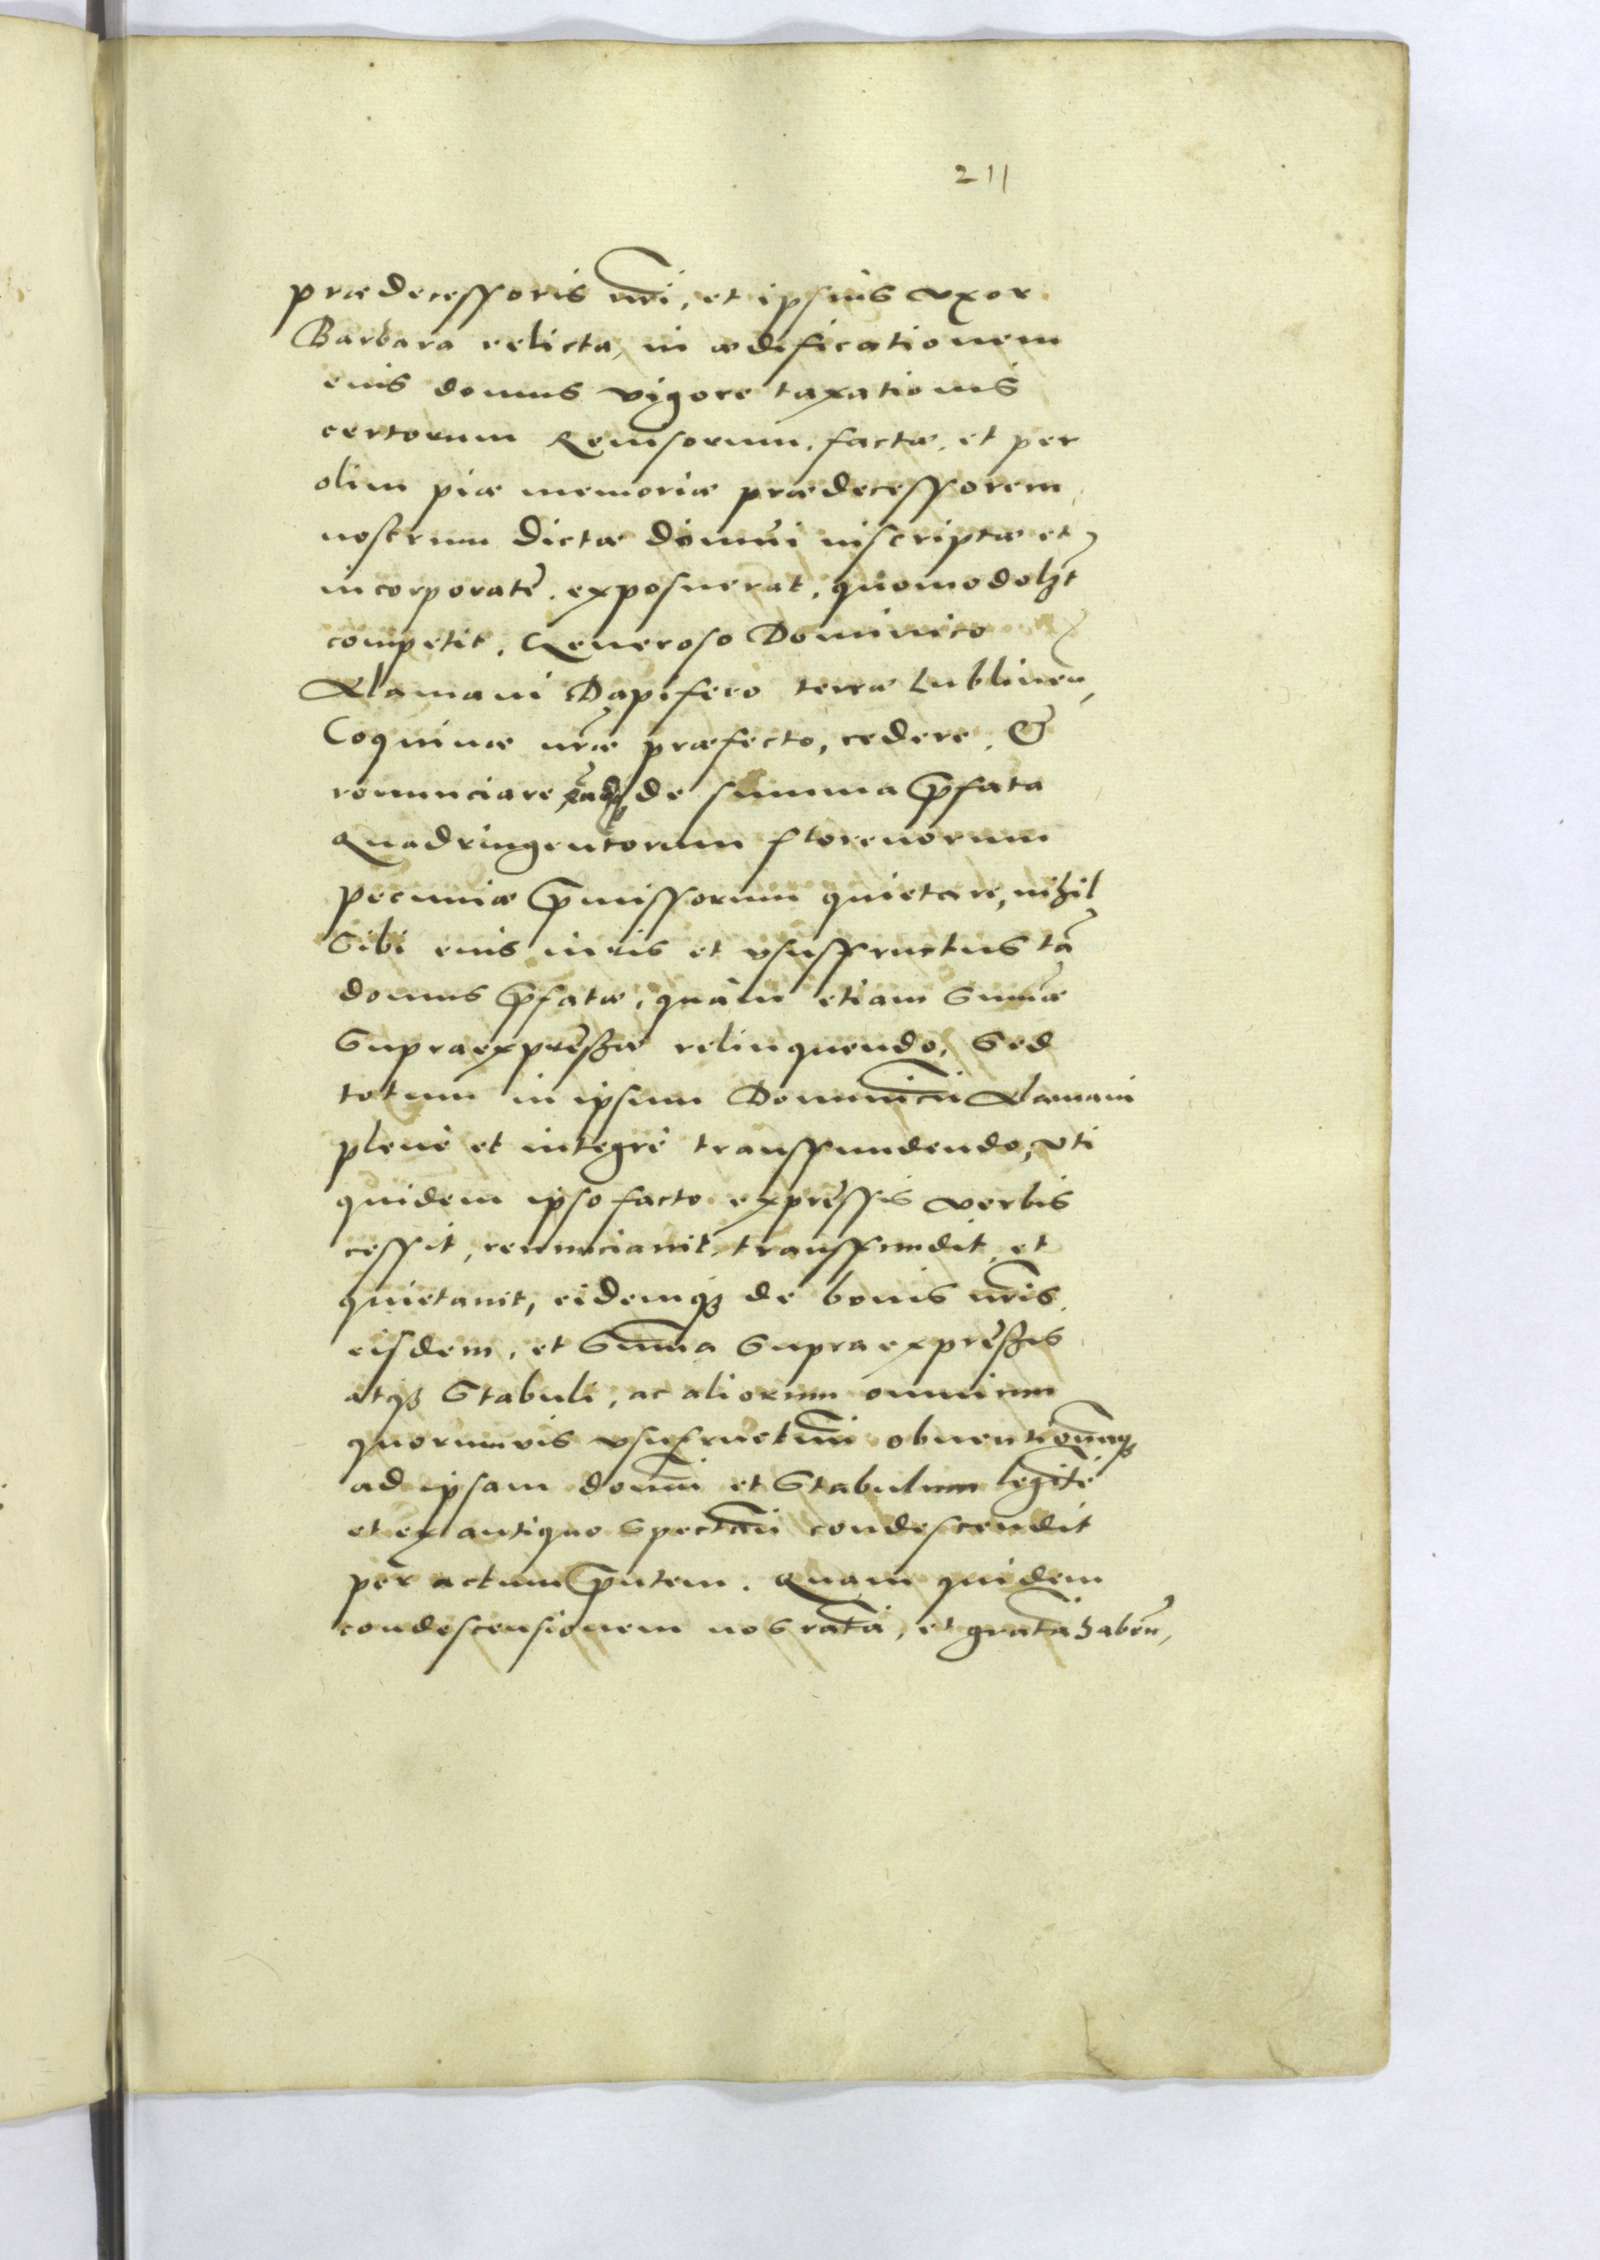 211
prædecessoris nri, et ipsius vxor
Barbara relicta, in ædificationem
eius domus vigore taxationis
certorum Reuisorum, factæ, et per
olim piæ memoriæ prædecessorem
nostrum dictæ domui inscriptæ et
incorporatę. exposuerat, quomodolzt
competit, Generoso Dominico
Alamani Dapifero terræ Lublinen,
Coquinæ nræ præfecto, cedere, &
renunciare de summa pfata
Quadringentorum florenorum
pecuniæ pmissorum quietare, nihil
Sibi eius iuris et vsusfructus tã
domus pfatæ, quàm etiam Sumæ
Supraexpreßæ relinquendo, Sed
totum in ipsum Dominicũ Alamani
plenè et integrè transfundendo, vti
quidem ipso facto expressis verbis
cessit, renunciauit, transfundit, et
quietauit, eidemq3 de bonis nris
eisdem, et Suma Supraexpreßis
atq3 Stabuli, ac aliorum omnium
quorumuis vsufructuũ obuentionũq3
ad ipsam domũ et Stabulum legitè
et ex antiquo Spectañ condescendit
per actum pntem. Quam quidem
condescensionem nos ratã, et gratã haben,